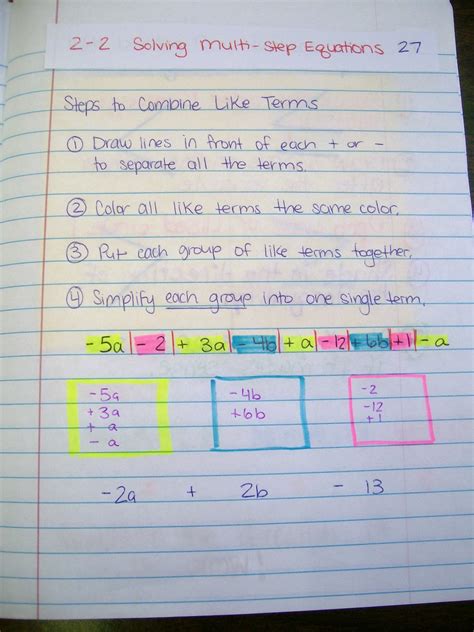 2-2 Solving Multi-Step Equations 27
Steps to Combine Like Terms
① Draw lines in front of each + or -
to separate all the terms.
② Color all like terms the same color.
③ Put each group of like terms together.
④ Simplify each group into one single term.
-5a | -2 | + 3a | -4b | + a | -12 | +6b | +1 | -a
-5a
+3a
+ a
- a
-4b
+6b
-2
-12
+1
-2a + 2b - 13